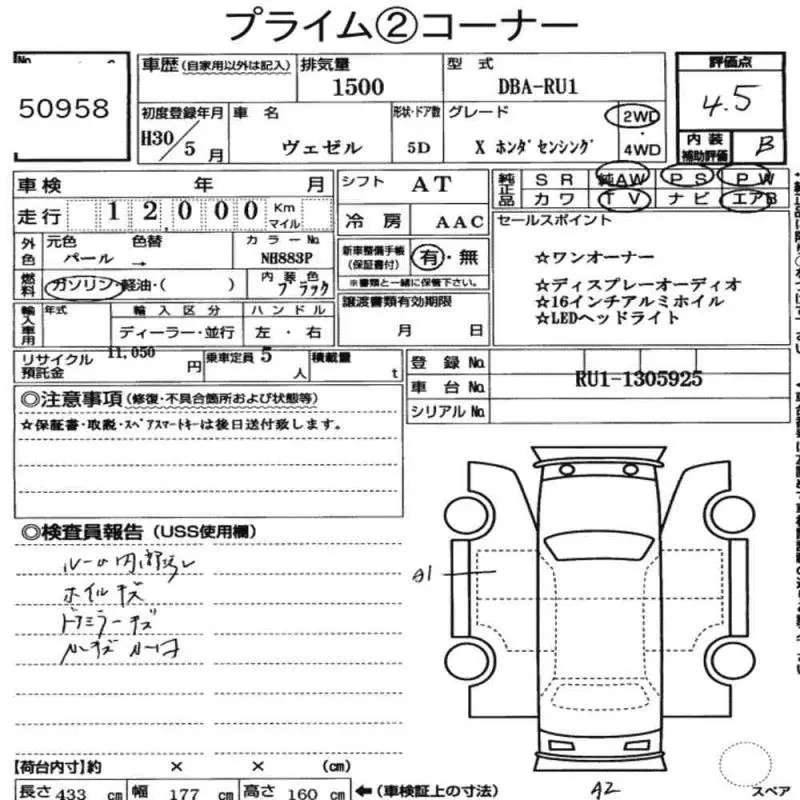 プライム②コーナー
No
50958
車歴 (自家用以外は記入)
排気量
1500
型 式
DBA-RU1
評価点
4.5
初度登録年月
H30/5月
車 名
ヴェゼル
形状・ドア数
5D
グレード
X ホンダセンシング
2WD
・
4WD
内装
補助評価
B
車検 年 月
走行 12,000 Km マイル
シフト AT
冷 房 AAC
純正品
SR 純AW PS PW
カワ TV ナビ エアB
外色
元色 色替 カラーNo.
パール → NH883P
燃料
ガソリン・軽油・( )
内装色
ブラック
新車整備手帳
(保証書付)
有・無
※書類と一緒に保管下さい。
セールスポイント
☆ワンオーナー
☆ディスプレーオーディオ
☆16インチアルミホイル
☆LEDヘッドライト
輸入車用
年式 輸入区分 ハンドル
ディーラー・並行 左・右
譲渡書類有効期限
月 日
リサイクル
預託金
11,050 円
乗車定員 5 人
積載量 t
登録No.
車台No. RU1-1305925
シリアルNo.
◎注意事項 (修復・不具合箇所および状態等)
☆保証書・取説・スペアスマートキーは後日送付致します。
◎検査員報告 (USS使用欄)
ホイルキズ
ドアミラーキズ
A1
A2
【荷台内寸】約 × × (cm)
長さ 433 cm 幅 177 cm 高さ 160 cm ←(車検証上の寸法)
スペア